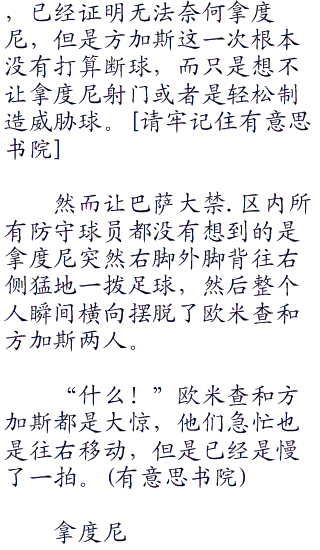 ，已经证明无法奈何拿度
尼，但是方加斯这一次根本
没有打算断球，而只是想不
让拿度尼射门或者是轻松制
造威胁球。[请牢记住有意思
书院]
然而让巴萨大禁.区内所
有防守球员都没有想到的是
拿度尼突然右脚外脚背往右
侧猛地一拨足球，然后整个
人瞬间横向摆脱了欧米查和
方加斯两人。
“什么！”欧米查和方
加斯都是大惊，他们急忙也
是往右移动，但是已经是慢
了一拍。(有意思书院)
拿度尼